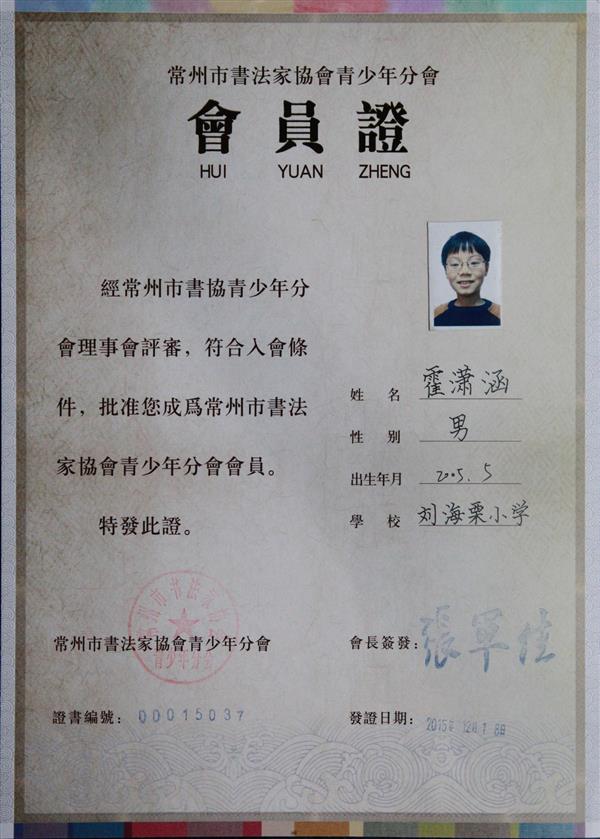 常州市書法家協會青少年分會
會員證
HUI YUAN ZHENG
經常州市書協青少年分
會理事會評審，符合入會條
件，批准您成爲常州市書法
家協會青少年分會會員。
特發此證。
姓名 霍潇涵
性别 男
出生年月 2005.5
學校 刘海栗小学
常州市書法家協會青少年分會
青少年分会
會長簽發：張軍佳
證書編號：00015037
發證日期：2015年12月18日